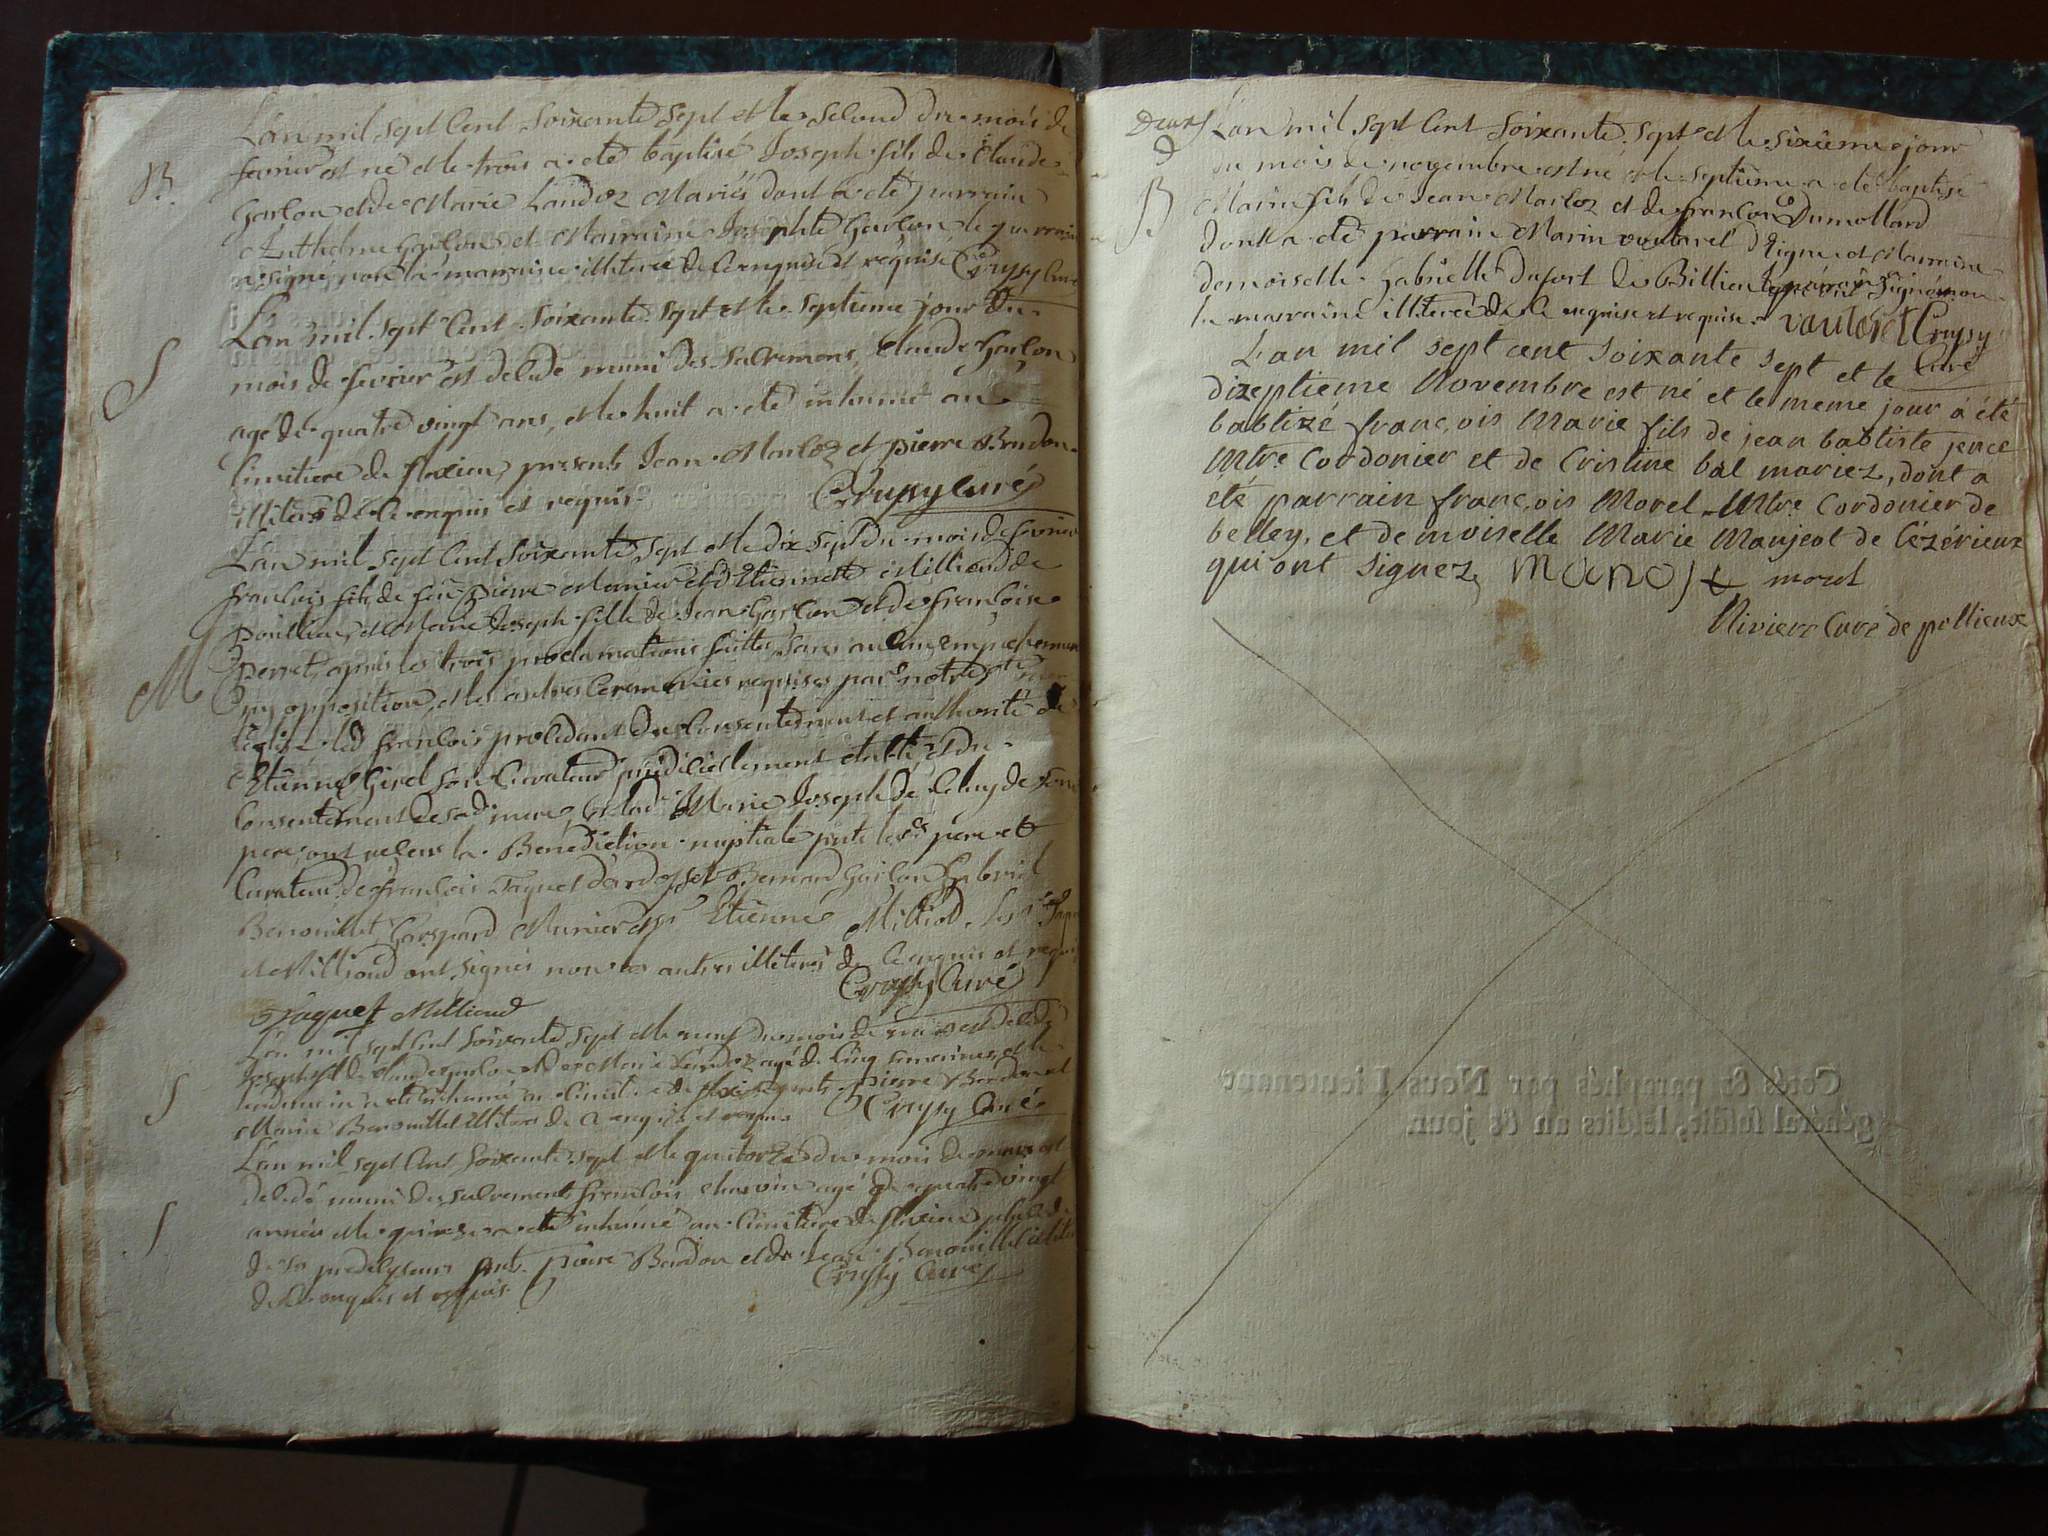 L'an mil sept Cent soixante sept et le second du mois de
B.
fevrier est né et le trois a été baptisé Joseph fils de Claude
Garlon et de Marie Landoz Mariés dont a été parrain
Anthelme Garlon et Marraine Josephte Garlon le parrain
a signé non la marraine illiterée de ce enquise et requise Crussy Curé
L'an mil sept Cent soixante sept et le septieme jour du
S
mois de fevrier est décédé muni des sacremens, Claude Garlon
agé de quatre vingt ans, et le huit a été inhumé au
cimitiere de flaxieu, presents Jean Marloz et pierre Bandon
illiterés de ce enquis et requis. Crussy Curé
L'an mil sept Cent soixante sept et le dix sept du mois de fevrier
francois fils de feu pierre Munier et d'Etiennette Milliand de
poullieu, et Marie Joseph fille de Jean Garlon et de francoise
M
perret, apres les trois proclamations faittes, sans aucun empechement
ny opposition, et les autres Ceremonies requises par notre
l'eglise led francois procédant du Consentement et authorité de
Etienne Girel son Curateur judiciellement etabli, et du
Consentement de sad mere, et lad Marie Joseph de celuy de son
pere, ont reçeus la Benediction nuptiale, pnts lesds pere et
Curateur, de francois Jaquet d'ardosset Bernard Garlon Gabriel
Benonillet Gaspard Munier et Etienne Milliod. les
et Milliand ont signés non les autres illiterés de ce enquis et requis
Crussy Curé
Jaquet Milliand
L'an mil sept Cent soixante sept et le neuf du mois de mars est décédé
Joseph fils de Claude garlon et de Marie Landoz agé de cinq semaines, et le
S
lendemain a été inhumé au cimit. de flaxieu pnts pierre Bandon et
Marin Benonillet illiterés de ce enquis et requis Crussy Curé
L'an mil sept Cent soixante sept et le quatorze du mois de mars est
décedé muni des sacrements francois charvin agé de quatre vingt
S
années et le quinze a été inhumé au cimitiere de flaxieu
de ses predecesseurs pnts pierre Bandon et de Jean Benonillet
de ce enquis et requis. Crussy Curé
Deux L'an mil sept Cent soixante sept et le sixieme jour
du mois de novembre est né et le septieme a été baptisé
B
Marin fils de Jean Marloz et de francoise Dumollard
dont a été parrain Marin vautaret et Marraine
demoiselle Gabrielle Dufort de Billieu le parrain signé non
la marraine illiterée de ce enquise et requise. vautaret Crussy
Curé
L'an mil sept cent soixante sept et le
dizeptieme Novembre est né et le meme jour à été
babtizé franc,ois Marie fils de jean babtiste jence
Mtre Cordonier et de Cristine bal mariez, dont a
été parrain franc,ois Morel Mtre Cordonier de
belley, et demoiselle Marie Manjeot de Cézérieux
qui ont signez, manojt morel
Riviere Curé de pollieux
Cotés & paraphés par Nous Lieutenant
général susdit, lesdits an & jour.